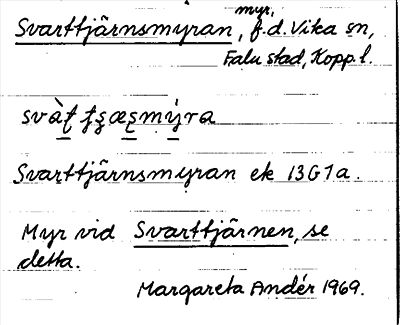 myr,
Svarttjärnsmyran, f.d. Vika sn,
Falu stad, Kopp. l.
Svarttjärnsmyran ek 13G1a.
Myr vid Svarttjärnen, se
detta.
Margareta Andér 1969.